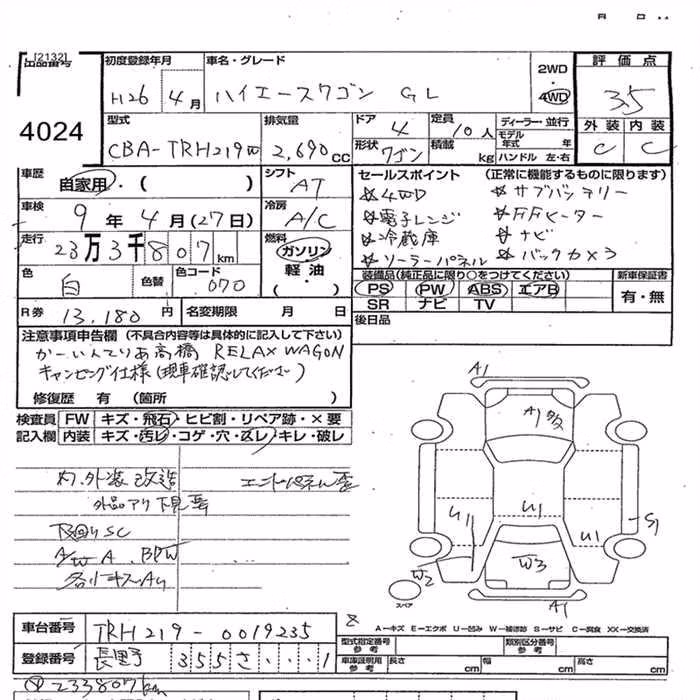 [2132]
出品番号
4024
初度登録年月
H26年4月
車名・グレード
ハイエースワゴン GL
2WD・4WD
評価点
3.5
外装 内装
C C
型式
CBA-TRH219W
排気量
2,690CC
ドア
4
定員
10人
形状
ワゴン
積載
kg
ディーラー・並行
モデル年式 年
ハンドル 左・右
車歴
自家用・( )
シフト
AT
セールスポイント (正常に機能するものに限ります)
☆4WD ☆サブバッテリー
☆電子レンジ ☆FFヒーター
☆冷蔵庫 ☆ナビ
☆ソーラーパネル ☆バックカメラ
車検
9年4月(27日)
冷房
A/C
走行
23万3千807km
燃料
ガソリン
軽油・
( )
色
白
色替
色コード
070
装備品(純正品に限り○をつけてください)
PS PW ABS エアB
SR ナビ TV
新車保証書
有・無
R券
13,180円
名変期限 月 日
後日品
注意事項申告欄 (不具合内容等は具体的に記入して下さい)
かーいんてりあ高橋 RELAX WAGON
キャンピング仕様(現車確認してください)
修復歴 有(箇所 )
検査員記入欄
FW キズ・飛石・ヒビ割・リペア跡・×要
内装 キズ・汚レ・コゲ・穴・スレ・キレ・破レ
内・外装改造 エンドパネル歪
外品アリ 下見要
下回りSC
A/W A、BPW
各リキズAU
A1
A1
U1 U1 U1 S1
W2
W3
A1
スペア
A=キズ E=エクボ U=凹み W=補修跡 S=サビ C=腐食 XX=交換済
車台番号
TRH219-0019235
登録番号
長野 355 さ ・・・1
型式指定番号
参考
類別区分番号
参考
車庫証明用
参考
長さ cm 幅 cm 高さ cm
233807km